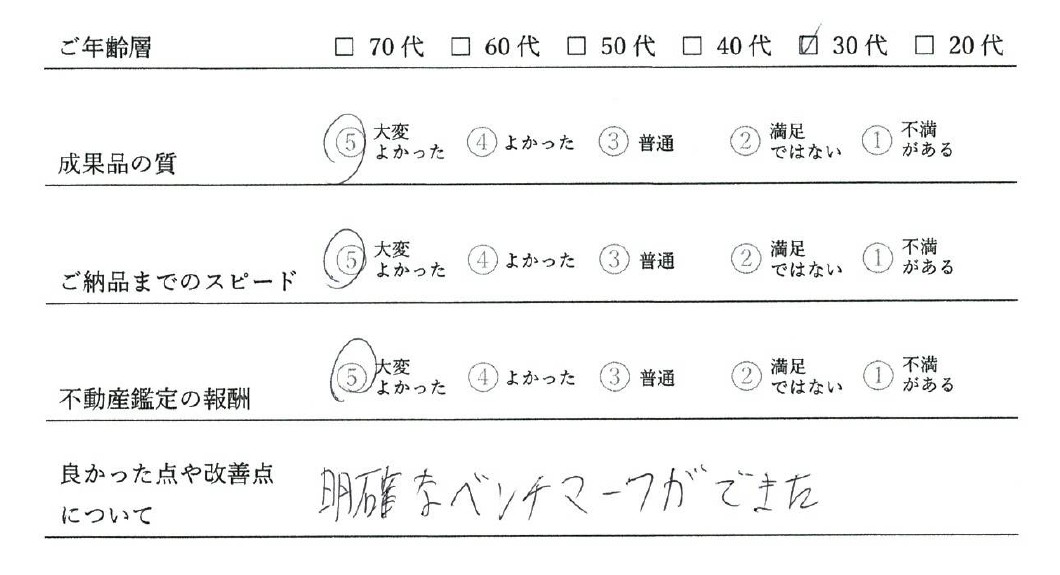 ご年齢層 □ 70代 □ 60代 □ 50代 □ 40代 ☑ 30代 □ 20代
成果品の質 ⑤ 大変よかった ④ よかった ③ 普通 ② 満足ではない ① 不満がある
ご納品までのスピード ⑤ 大変よかった ④ よかった ③ 普通 ② 満足ではない ① 不満がある
不動産鑑定の報酬 ⑤ 大変よかった ④ よかった ③ 普通 ② 満足ではない ① 不満がある
良かった点や改善点
について
明確なベンチマークができた